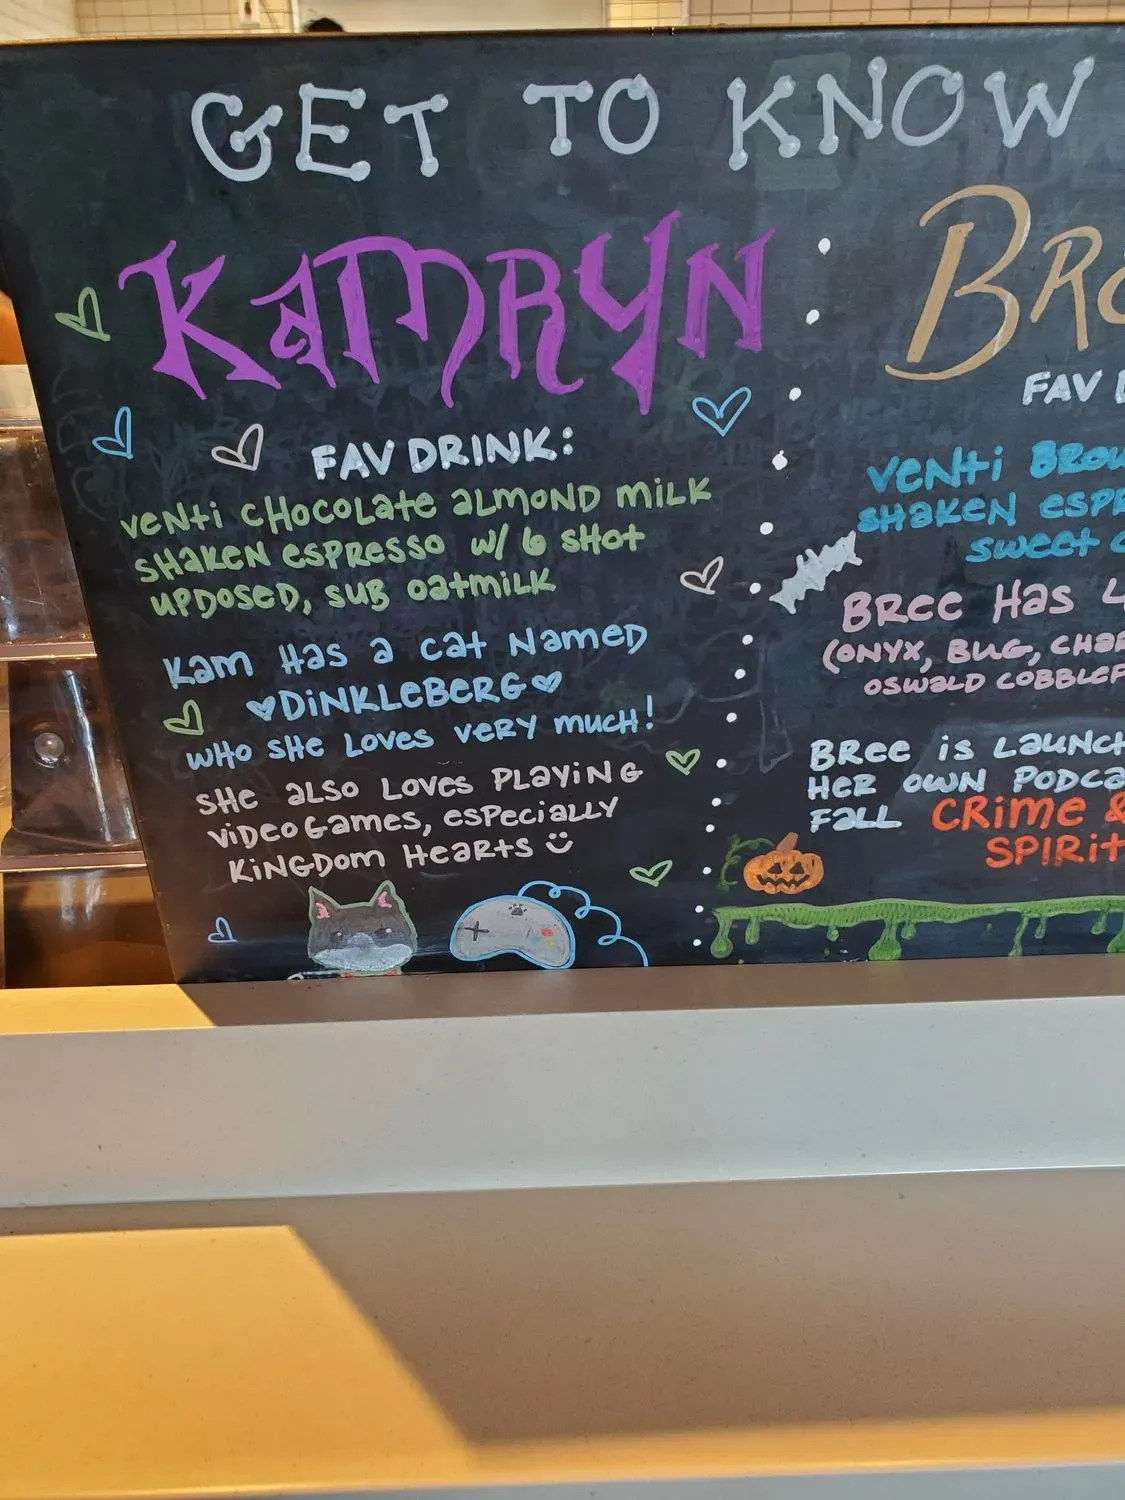 GET TO KNOW
KAMRYN
FAV DRINK:
VENTI CHOCOLATE ALMOND MILK
SHAKEN ESPRESSO W/ 6 SHOT
UPDOSED, SUB OATMILK
KAM HAS A CAT NAMED
DINKLEBERG
WHO SHE LOVES VERY MUCH!
SHE ALSO LOVES PLAYING
VIDEO GAMES, ESPECIALLY
KINGDOM HEARTS
FAV
VENTI
SHAKEN
SWEET
BREE HAS 4
(ONYX, BUG,
OSWALD
BREE IS
HER OWN
FALL CRIME &